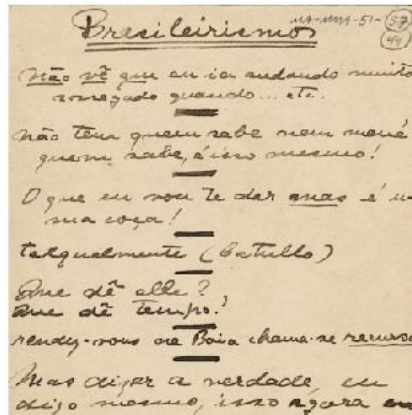 MA-MMA-51-57
44
Brasileirismos
não vê que eu ia andando muito
socegado quando... etc.
não tem quem sabe nem mané
quem sabe, é isso mesmo!
O que eu vou te dar mas é u
ma coça!
talqualmente (Catullo)
Que dê elle?
Que dê tempo?
rendez-vous na Baia chama-se recurso
Mas dizer a verdade, eu
digo mesmo, isso agora eu